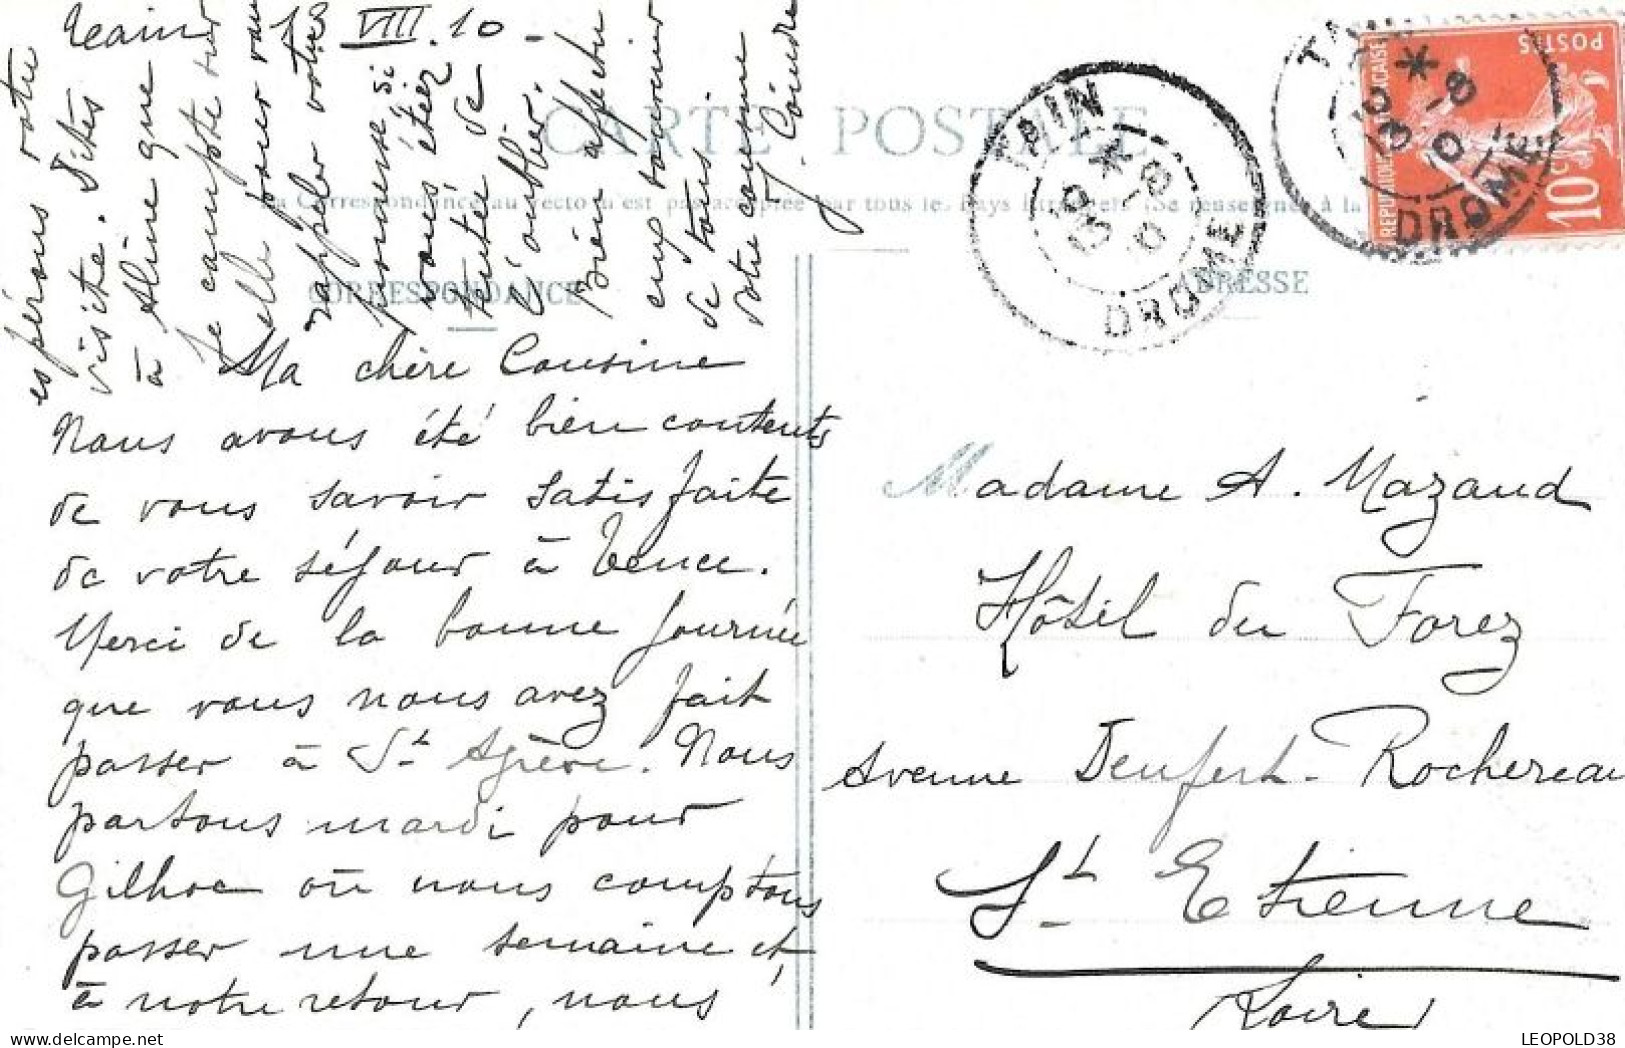 Tain 13 VIII. 10 -
CARTE POSTALE
La Correspondance au recto n'est pas acceptée par tous les Pays Etrangers (Se renseigner à la
CORRESPONDANCE
ADRESSE
Ma chère Cousine
Nous avons été bien contents
de vous savoir satisfaite
de votre séjour à Tence.
Merci de la bonne journée
que vous nous avez fait
passer à St Agrève. Nous
partons mardi pour
Gilhoc où nous comptons
passer une semaine et,
à notre retour, nous
espérons votre
visite. Dites
à Aline que
je compte sur
elle pour vous
rappeler votre
promesse si
vous étiez
tentée de
l'oublier.
Bien affectu
eux souvenir
de tous
votre cousine
J. Coindre
Madame A. Mazaud
Hôtel du Forez
Avenue Denfert-Rochereau
St Etienne
Loire
TAIN
13 8
10
DROME
TAIN
13 8
10
DROME
REPUBLIQUE FRANÇAISE
POSTES
10c
LEOPOLD38